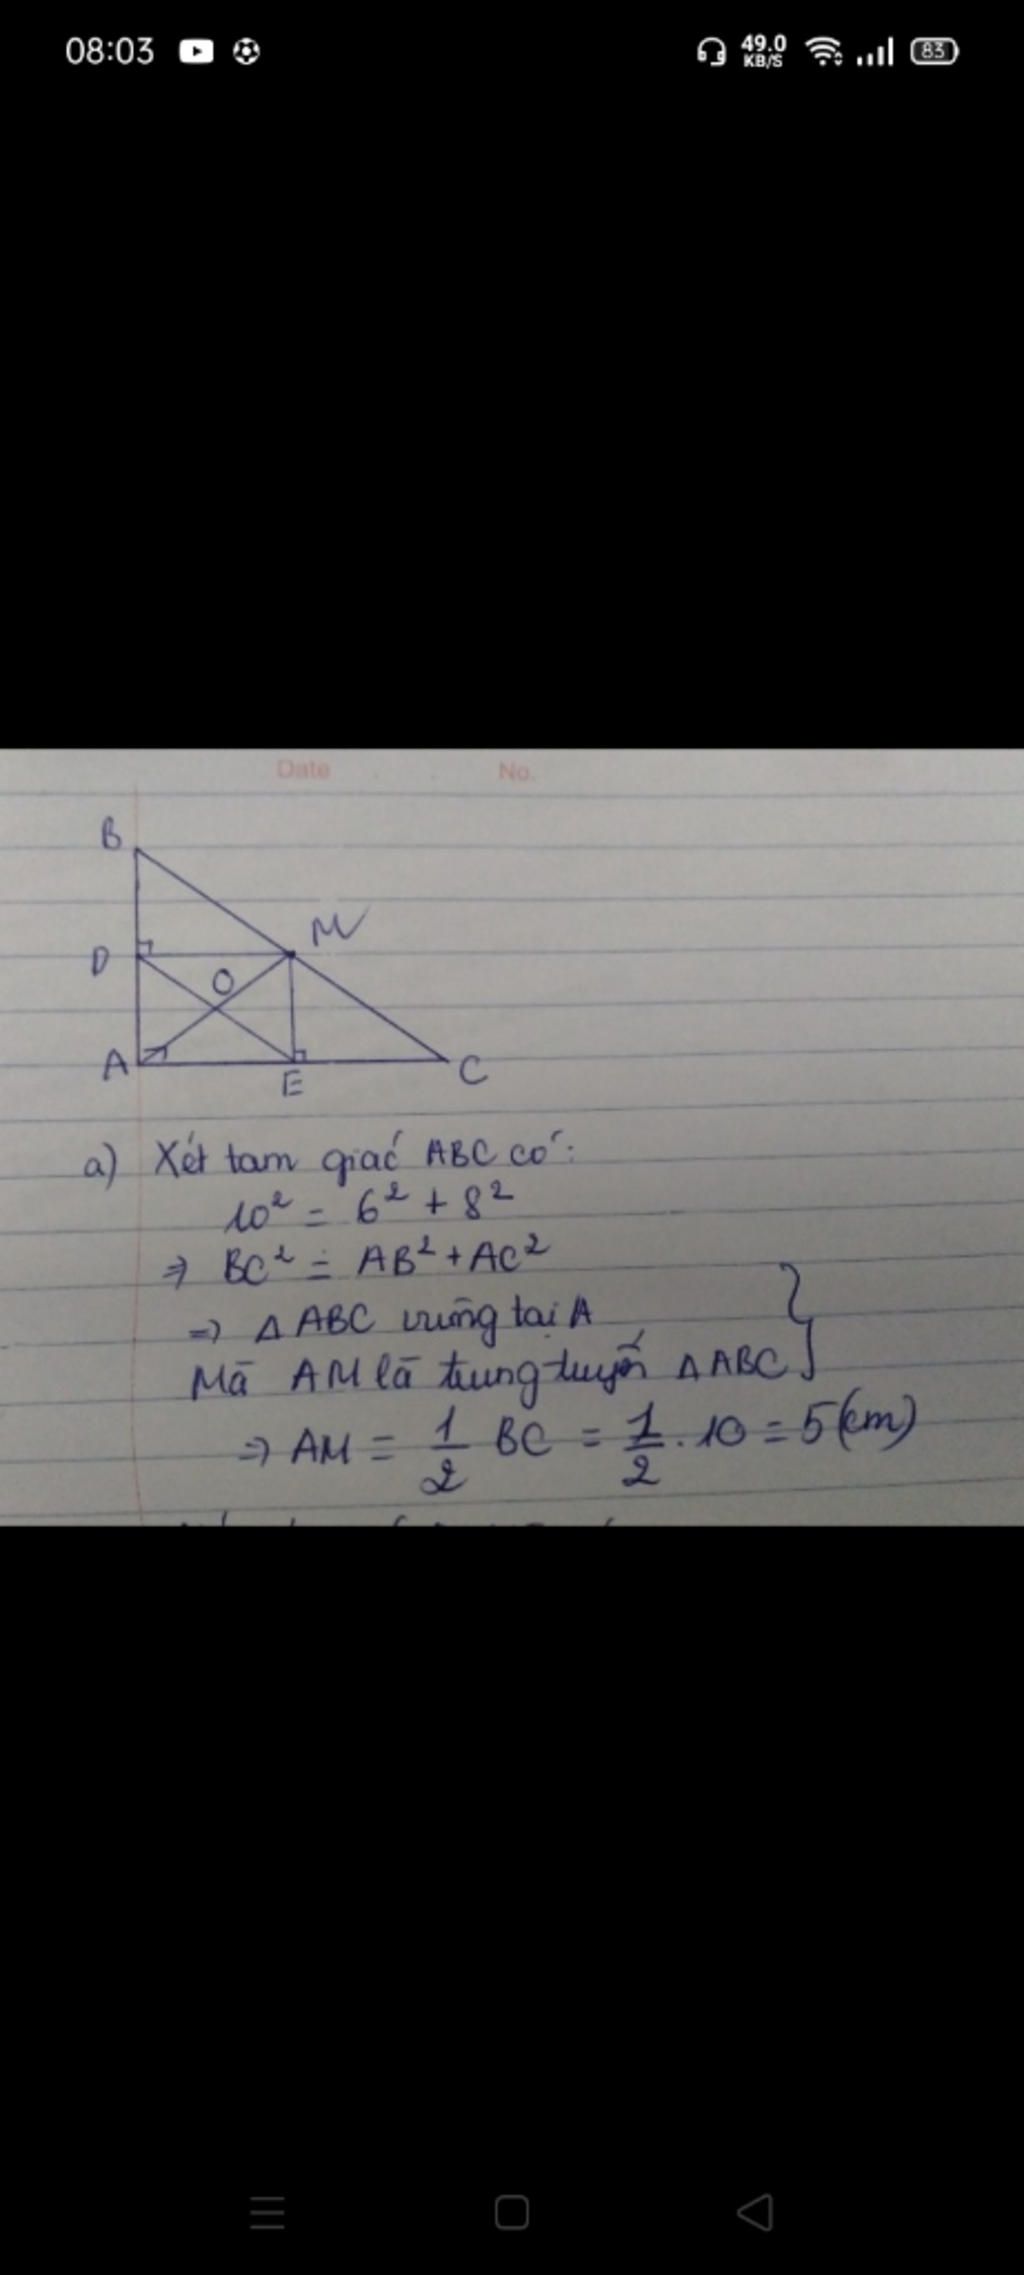 08:03
49.0
KB/S
83
Date No.
B
M
D
O
A
E
C
a) Xét tam giác ABC có:
10² = 6² + 8²
⇒ BC² = AB² + AC²
⇒ Δ ABC vuông tại A
Mà AM là trung tuyến Δ ABC
⇒ AM = 1/2 BC = 1/2 . 10 = 5 (cm)